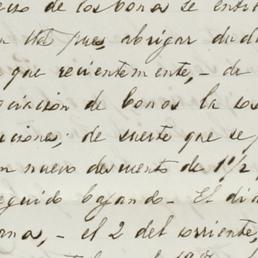 cio de los bonos se entre
Ud pues, abrigar dudas
que recientemente, - de
ociacion de bonos la sos
uciones; de suerte que se p
un nuevo descuento de 1 1/2 p
eguido bajando - El dia
erna, - el 2 del corriente,